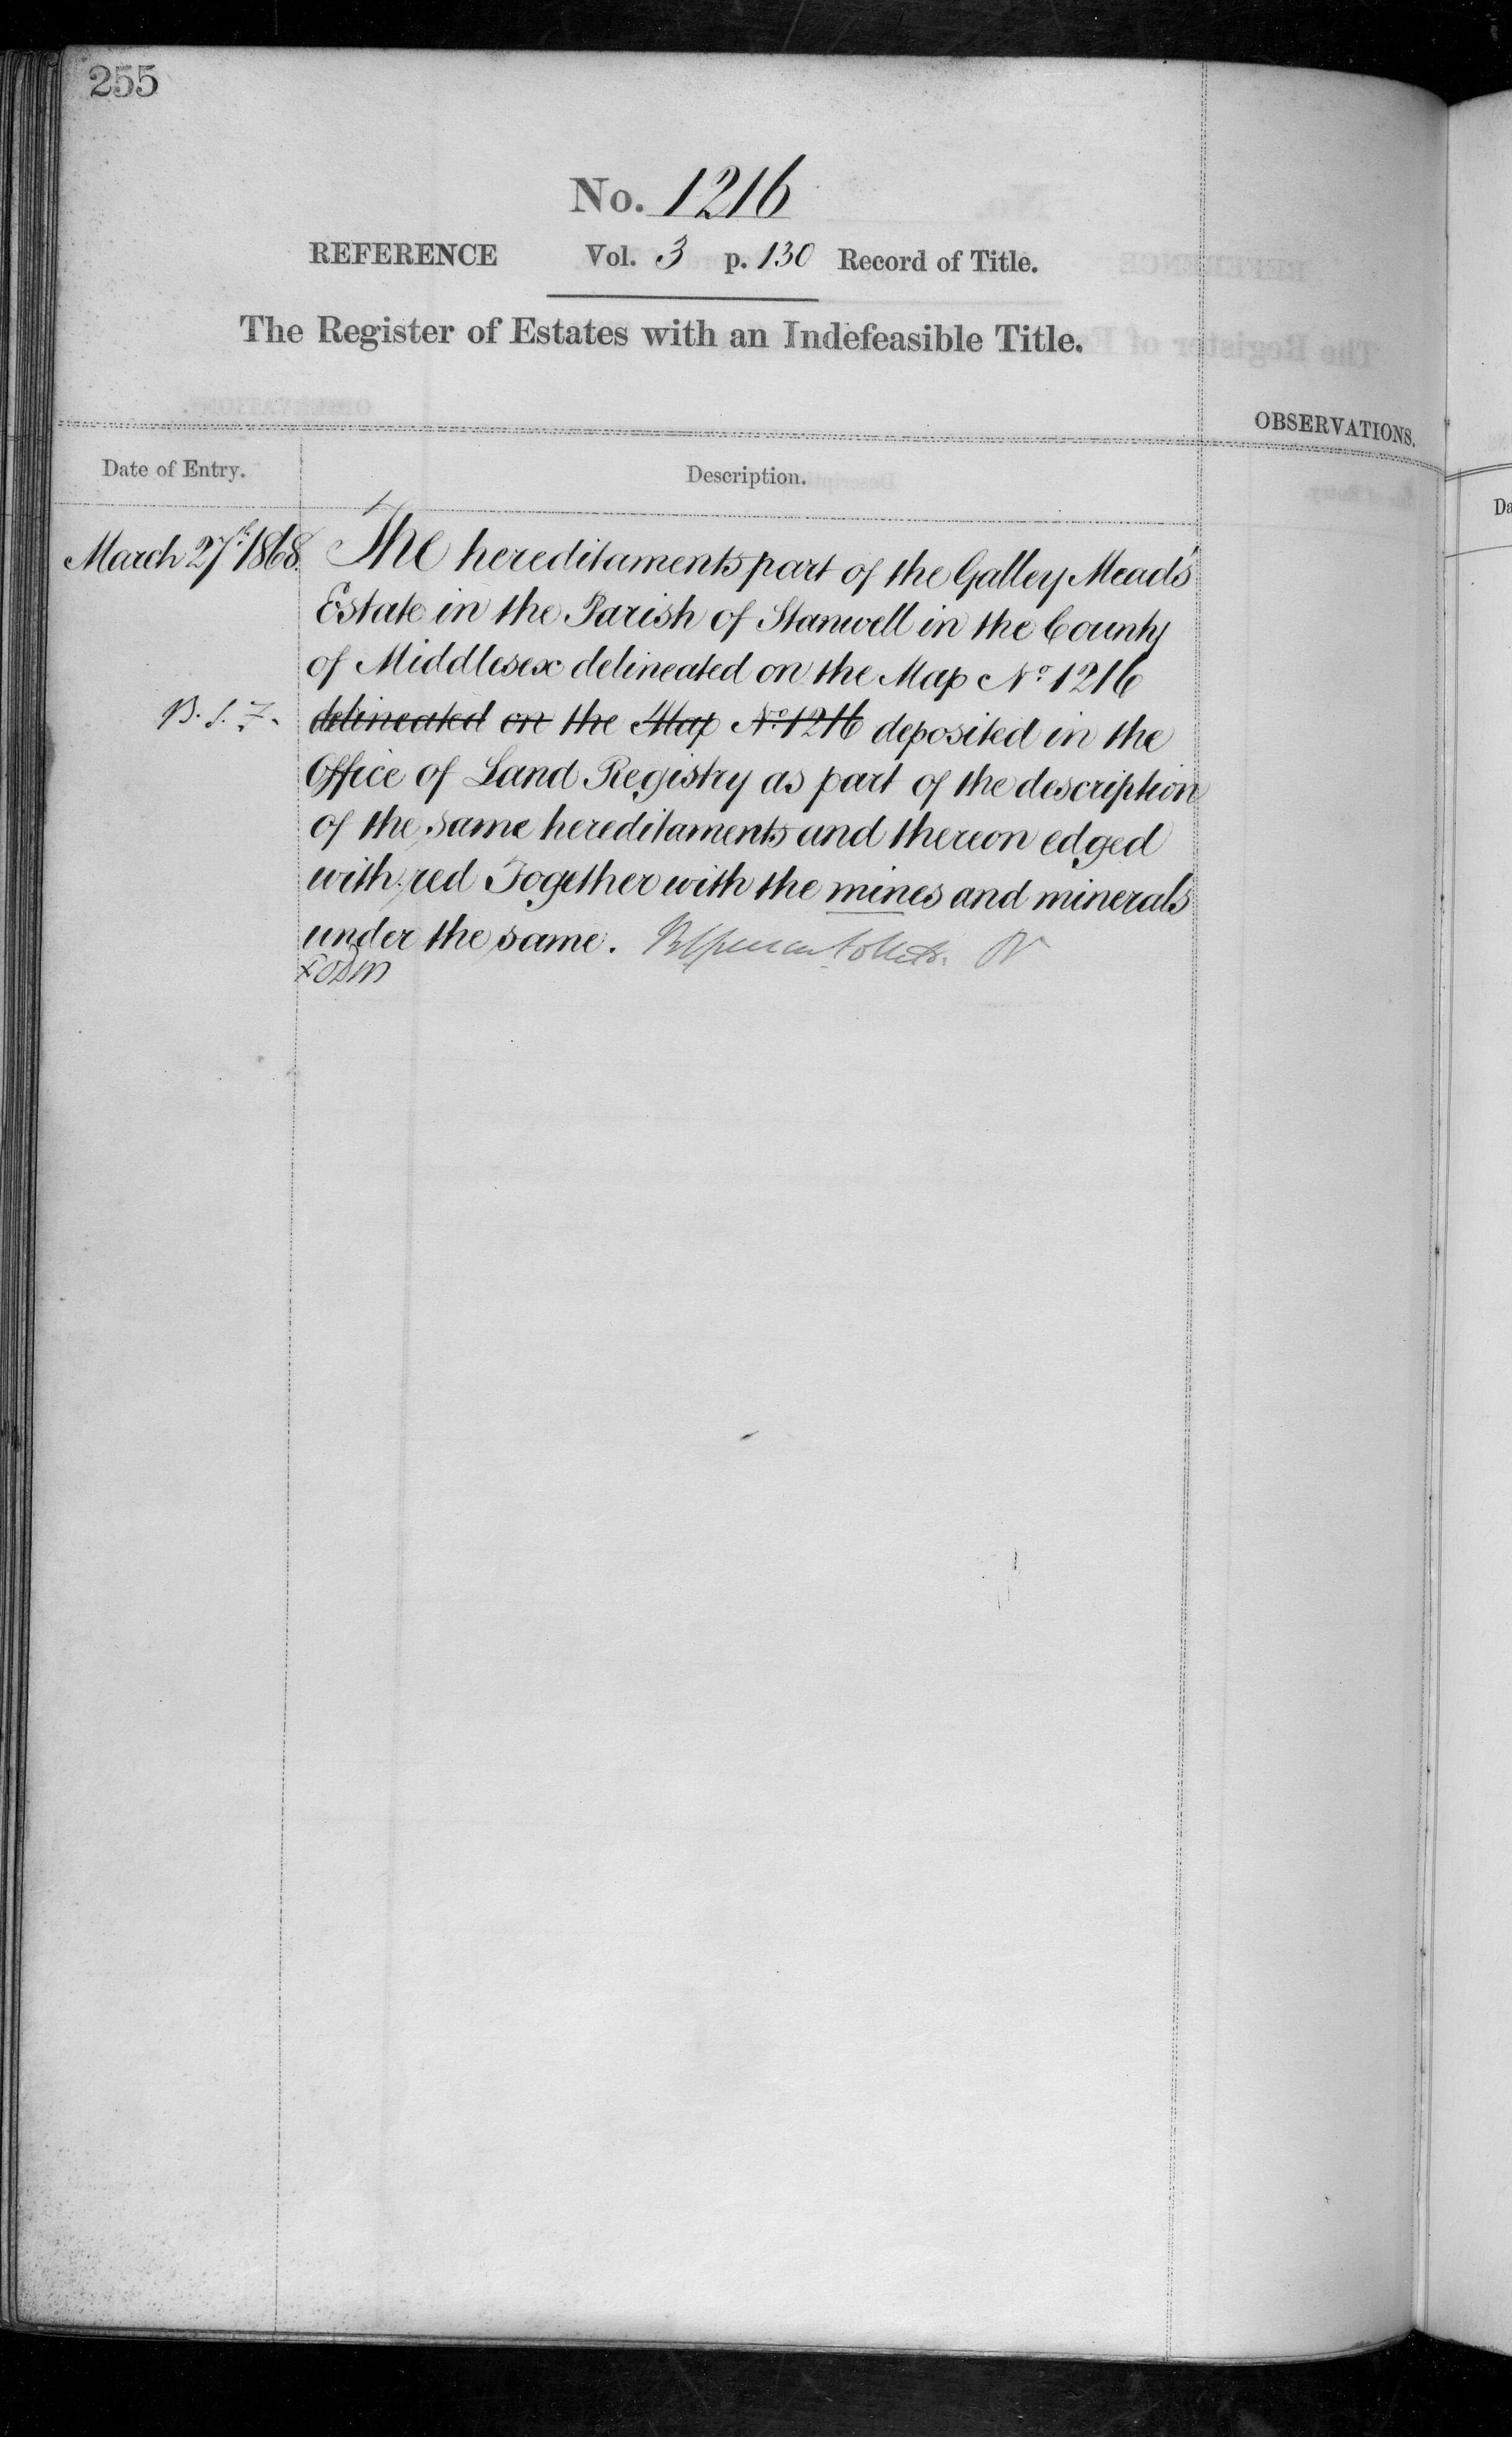 255
No. 1216
REFERENCE Vol. 3 p. 130 Record of Title.
The Register of Estates with an Indefeasible Title.
OBSERVATIONS.
Date of Entry. Description.
March 27th 1868. The hereditaments part of the Galley Meads
Estate in the Parish of Stanwell in the County
of Middlesex delineated on the Map No 1216
delineated on the Map No 1216 deposited in the
Office of Land Registry as part of the description
of the same hereditaments and thereon edged
with red Together with the mines and minerals
under the same.
Da